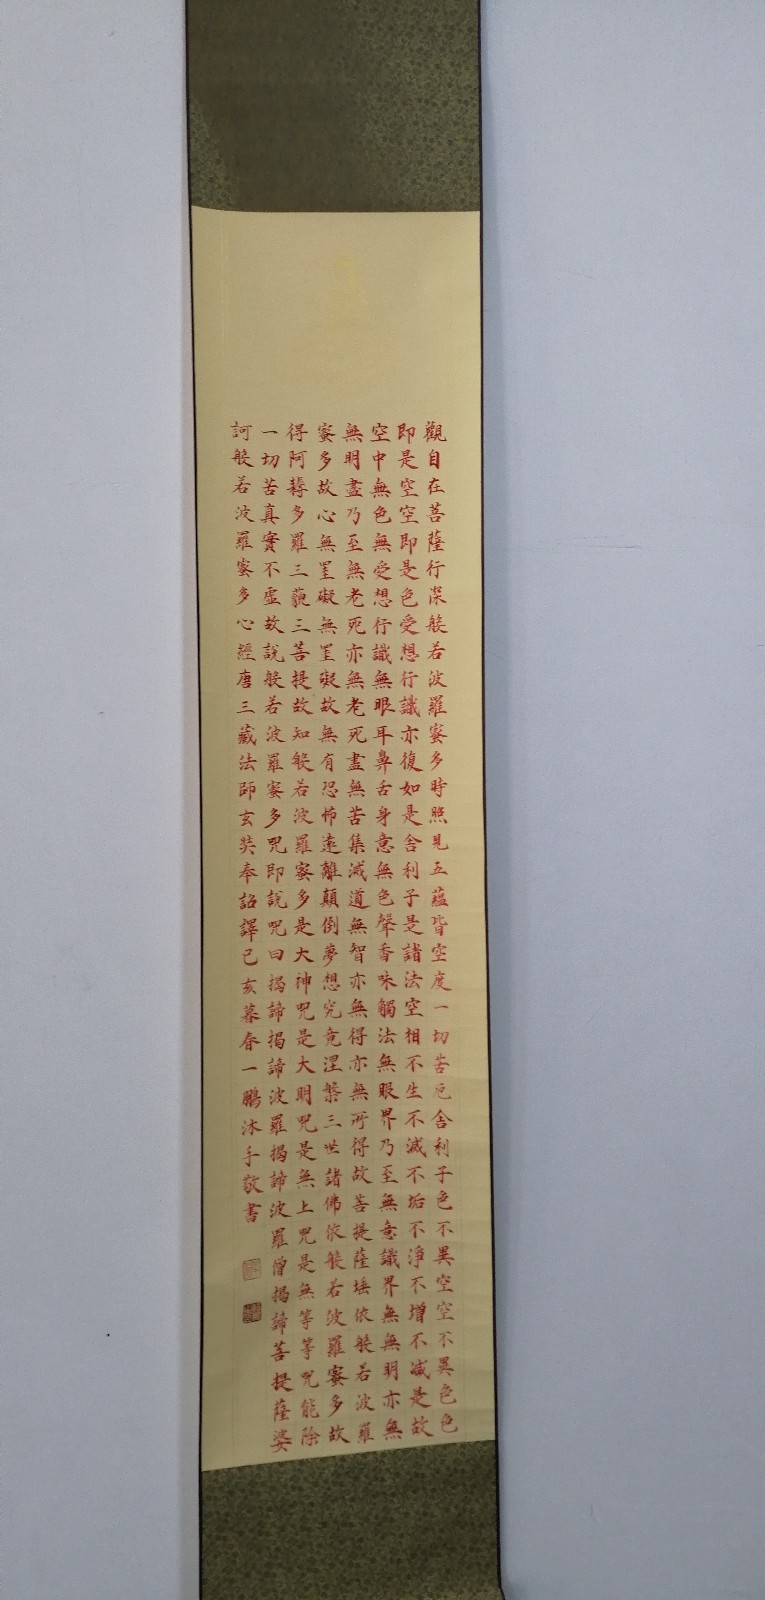 觀自在菩薩行深般若波羅蜜多時照見五蘊皆空度一切苦厄舍利子色不異空空不異色色
即是空空即是色受想行識亦復如是舍利子是諸法空相不生不滅不垢不淨不增不減是故
空中無色無受想行識無眼耳鼻舌身意無色聲香味觸法無眼界乃至無意識界無無明亦無
無明盡乃至無老死亦無老死盡無苦集滅道無智亦無得亦無所得故菩提薩埵依般若波羅
蜜多故心無罣礙無罣礙故無有恐怖遠離顛倒夢想究竟涅槃三世諸佛依般若波羅蜜多故
得阿耨多羅三藐三菩提故知般若波羅蜜多是大神咒是大明咒是無上咒是無等等咒能除
一切苦真實不虛故說般若波羅蜜多咒即說咒曰揭諦揭諦波羅揭諦波羅僧揭諦菩提薩婆
訶般若波羅蜜多心經唐三藏法師玄奘奉詔譯己亥暮春一鵬沐手敬書